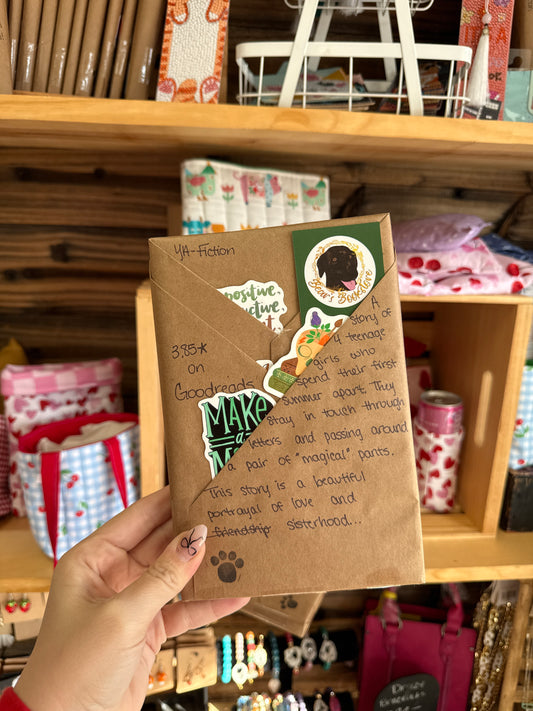 YA-Fiction
3,85☆
on
Goodreads
positive
MAKE
a
Bear's Bookstore
A
story of
4 teenage
girls who
spend their first
summer apart. They
stay in touch through
letters and passing around
a pair of "magical" pants.
This story is a beautiful
portrayal of love and
friendship sisterhood...